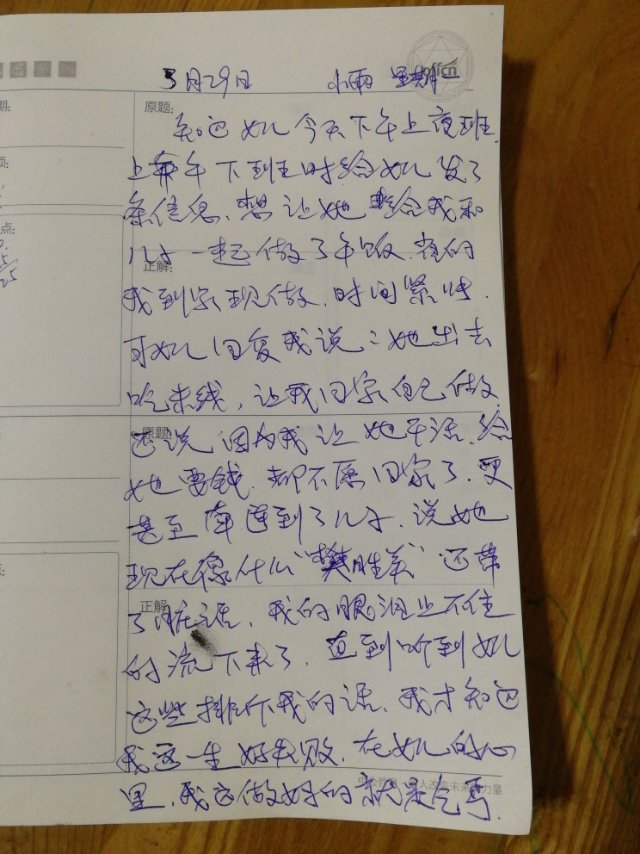 5月29日 小雨 星期
原题:
知道女儿今天下午上夜班
上午下班时给女儿发了
条信息、想让她给我和
儿子一起做了午饭、省的
正解:
我到家现做、时间紧张.
可女儿回复我说:她出去
吃米线，让我回家自己做
原题:
还说因为我让她干活、给
她要钱、都不愿回家了.更
甚至牵连到了儿子、说她
现在像什么“樊胜美”还带
正解:
了脏话、我的眼泪止不住
的流下来了、直到听到女儿
这些排斥我的话、我才知道
我这一生好失败、在女儿的心
里、我这做妈的就是个